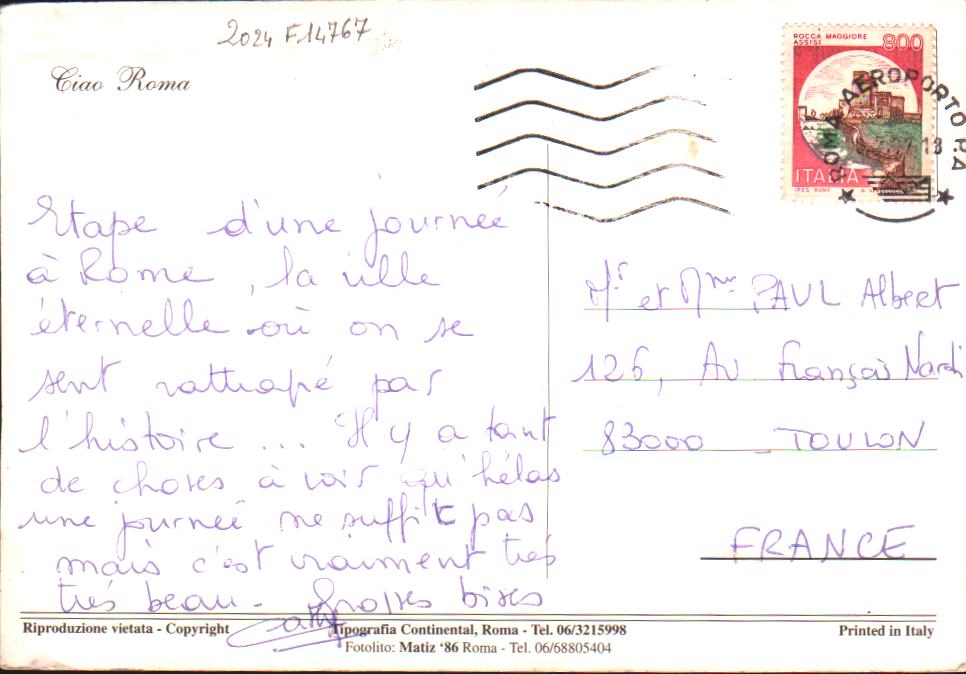 2024 F14767
Ciao Roma
ROCCA MAGGIORE
ASSISI
800
ITALIA
ROMA AEROPORTO P.A
18
Etape d'une journeé
à Rome, la ville
éternelle où on se
sent rattrapé par
l'histoire ... Il y a tant
de choses à voir qu'hélas
une journeé ne suffit pas
mais c'est vraiment très
très beau - Grosses bises
Mr et Mme PAUL Albert
126, Av François Nardi
83000 - TOULON
FRANCE
Riproduzione vietata - Copyright
Tipografia Continental, Roma - Tel. 06/3215998
Printed in Italy
Fotolito: Matiz '86 Roma - Tel. 06/68805404